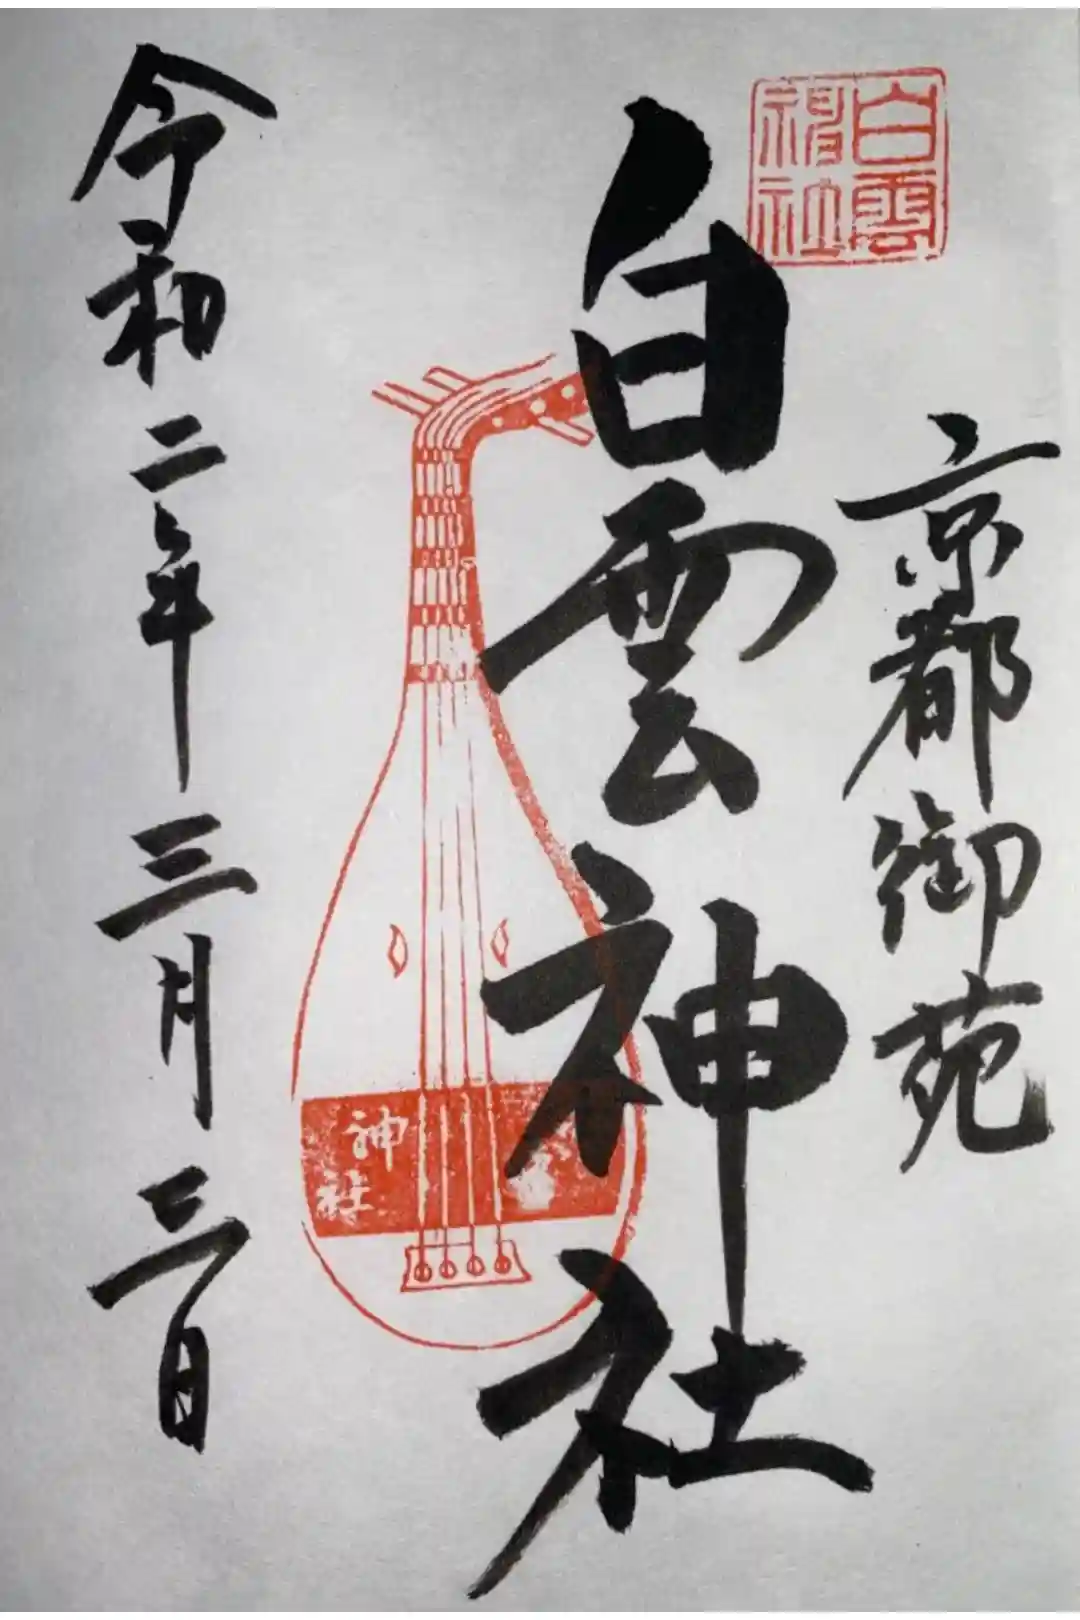 京都御苑
白雲
神社
白雲神社
神社
令和二年三月三日